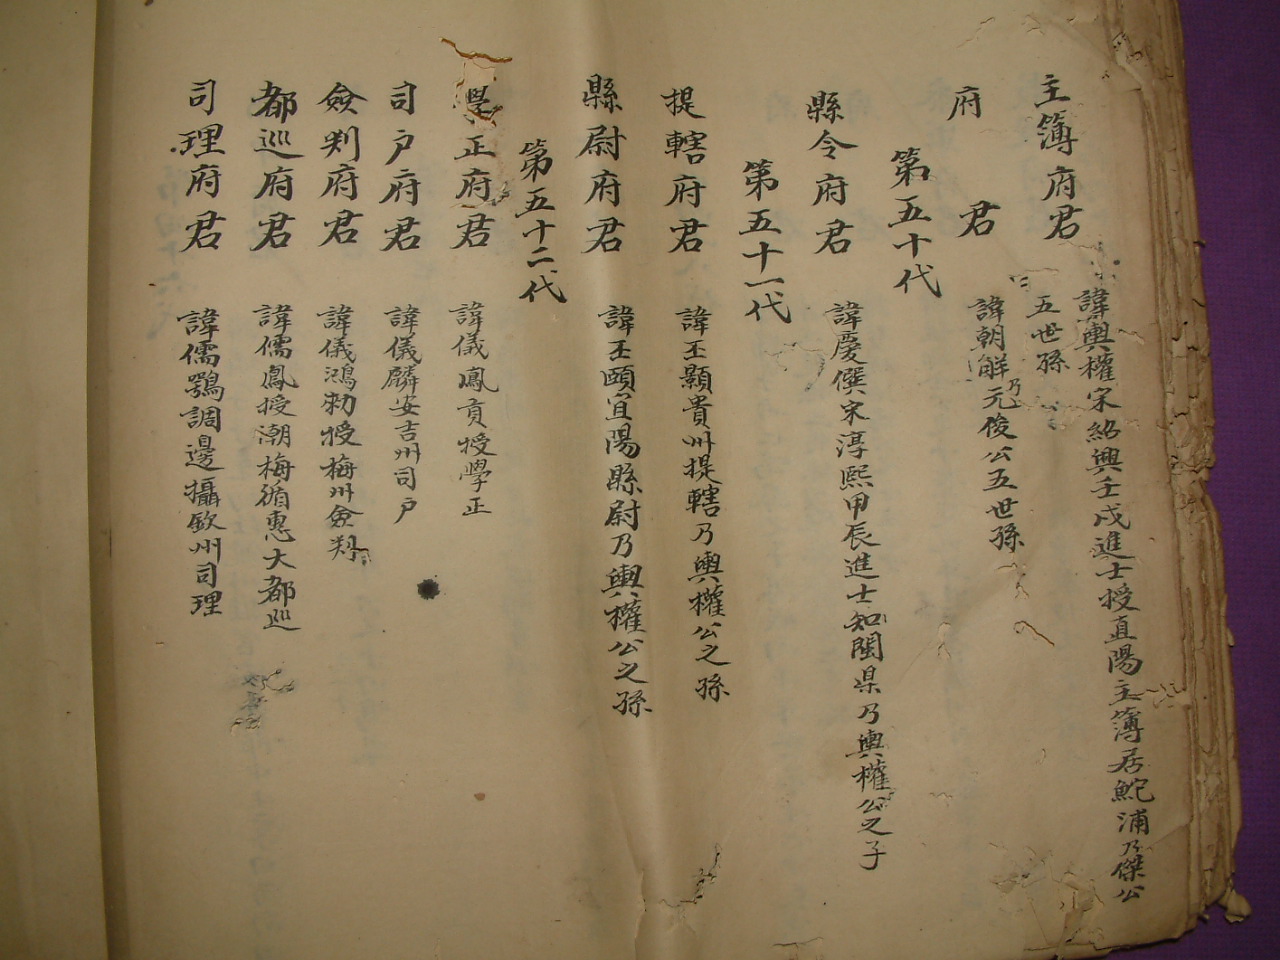 主簿府君
諱輿權宋紹興壬戌進士授直陽主簿居鮀浦乃傑公
五世孫
府君
諱朝觧元乃俊公五世孫
第五十代
縣令府君
諱慶僎宋淳熙甲辰進士知閩県乃輿權公之子
第五十一代
提轄府君
諱丕顯貴州提轄乃輿權公之孫
縣尉府君
諱丕頤宜陽縣尉乃輿權公之孫
第五十二代
學正府君
諱儀鳳貢授學正
司戶府君
諱儀麟安吉州司戶
僉判府君
諱儀鴻勅授梅州僉判
都巡府君
諱儒鳳授潮梅循惠大都巡
司理府君
諱儒鶚調邊攝欽州司理